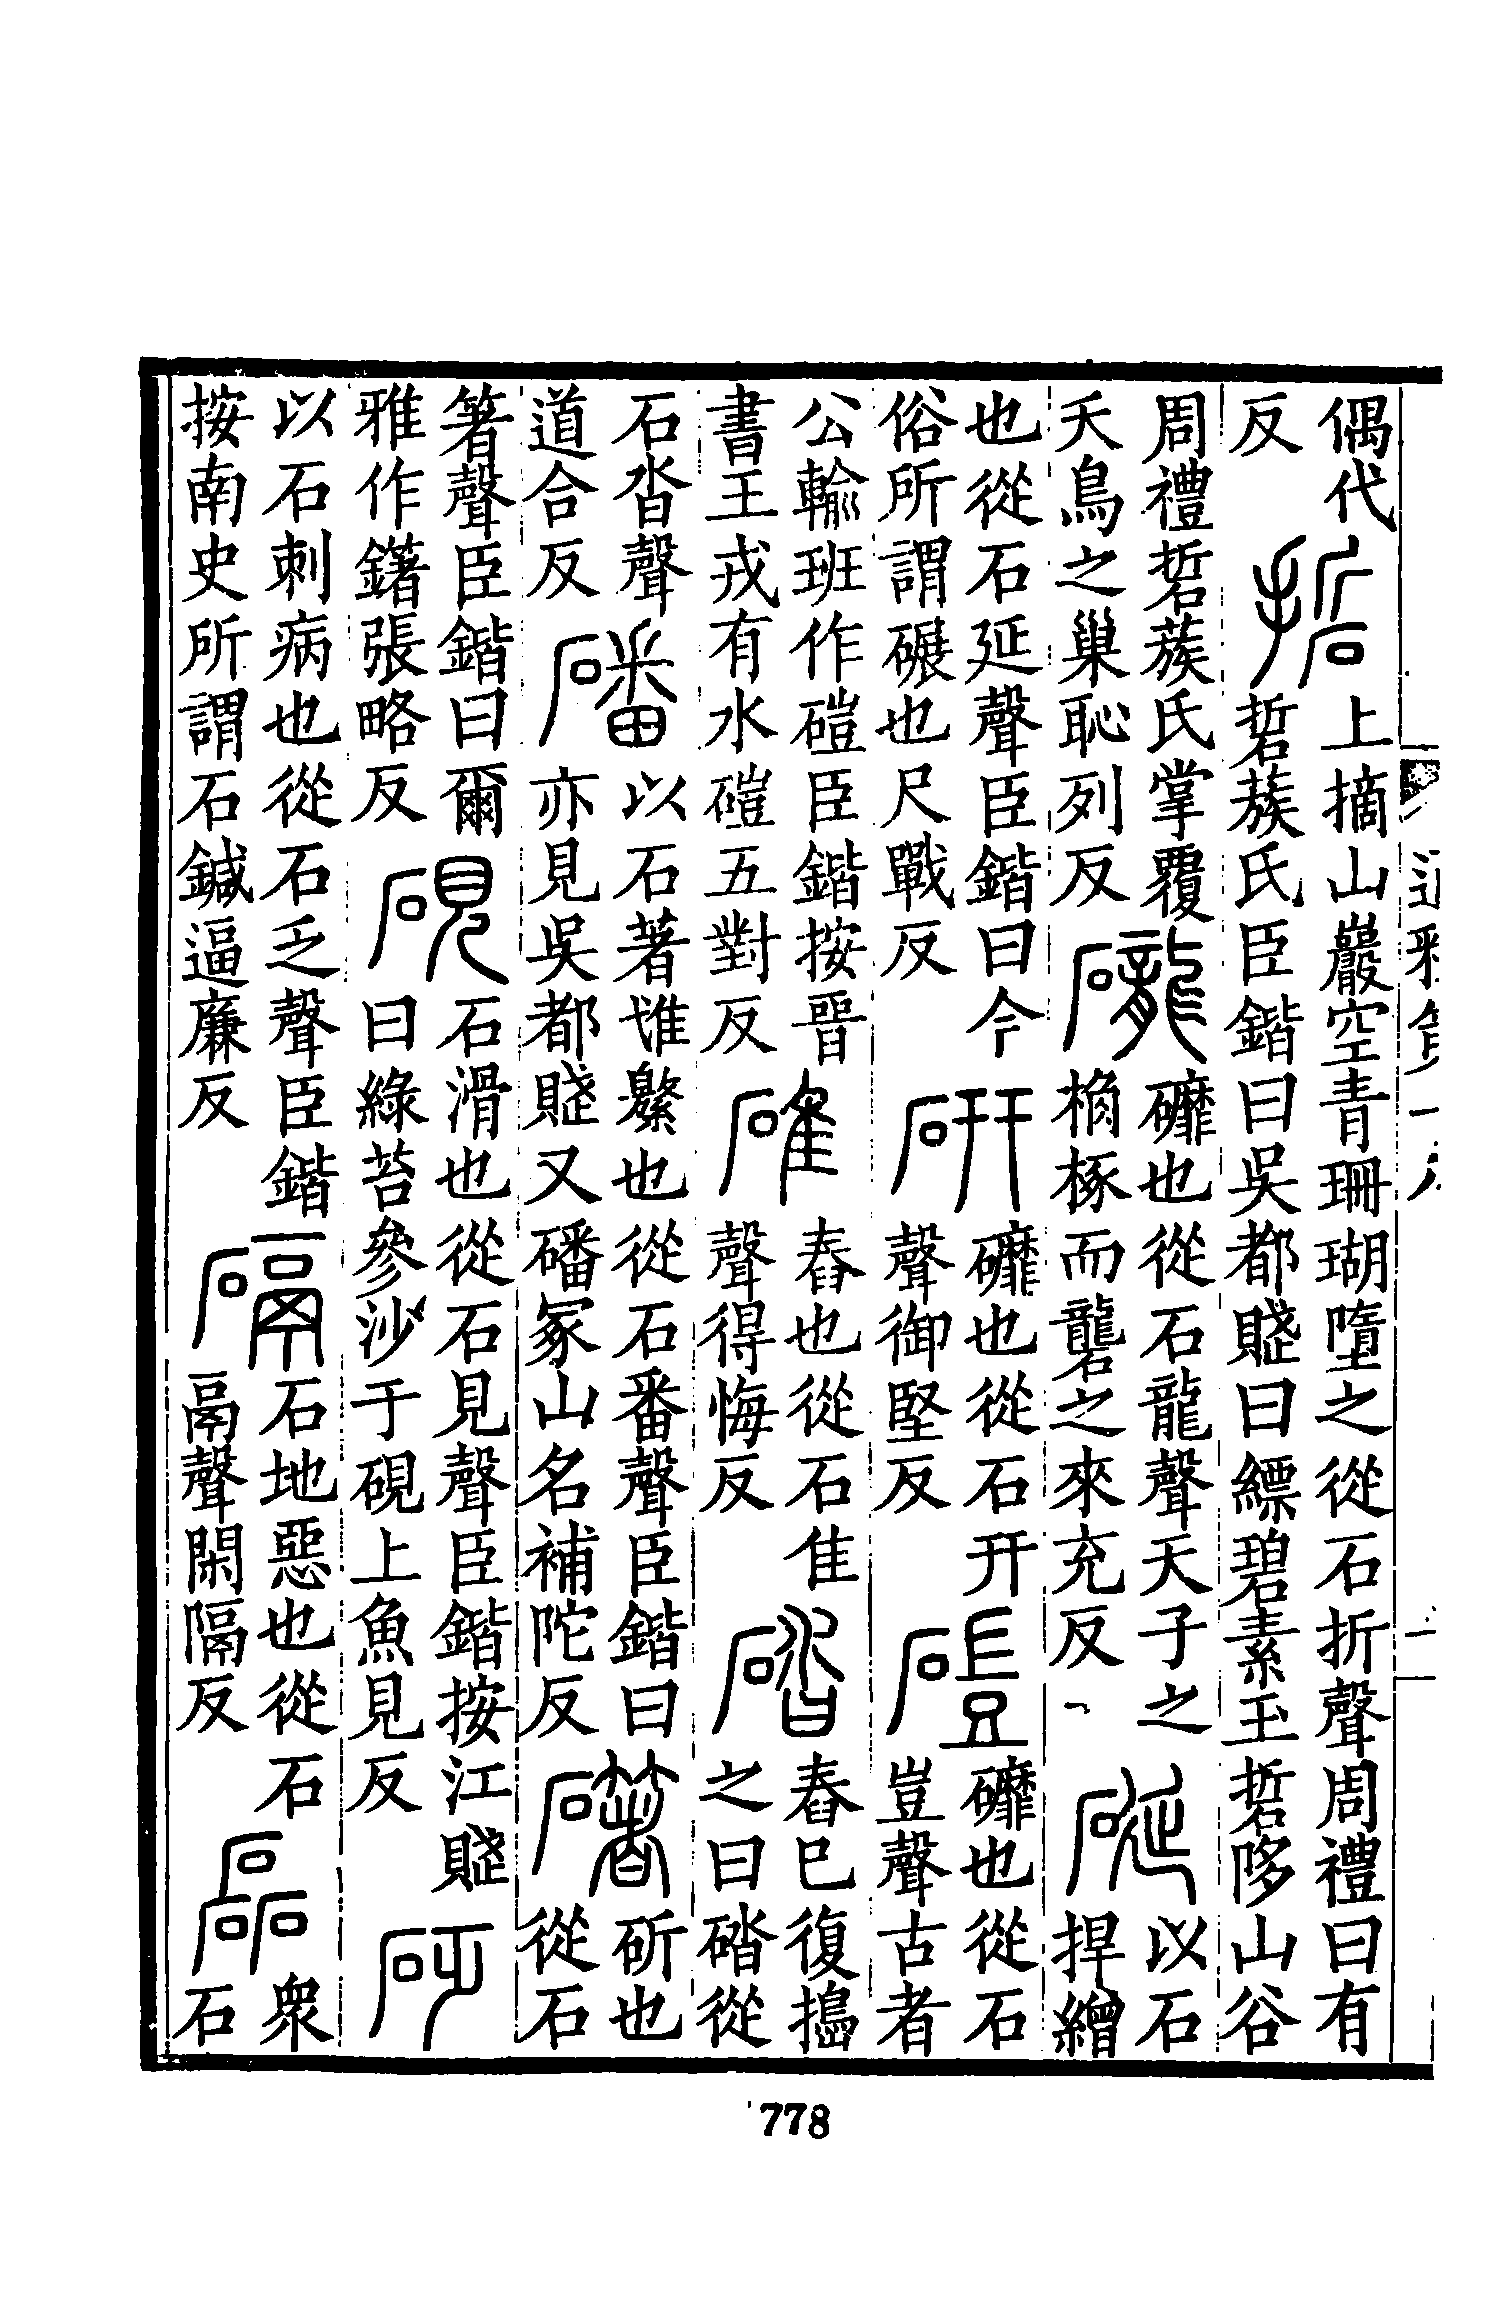 偶代反 硩 上摘山巖空青珊瑚墮之從石折聲周禮曰有硩蔟氏臣鍇曰吳都賦曰縹碧素玉硩哆山谷
周禮硩蔟氏掌覆夭鳥之巢恥列反 礱 䃺也從石龍聲天子之桷椓而礱之來充反 硟 以石捍繒
也從石延聲臣鍇曰今俗所謂碾也尺戰反 研 䃺也從石幵聲御堅反 磑 䃺也從石豈聲古者
公輸班作磑臣鍇按晉書王戎有水磑五對反 碓 舂也從石隹聲得悔反 䂿 舂已復擣之曰䂿從
石沓聲道合反 磻 以石著惟繁也從石番聲臣鍇曰亦見吳都賦又磻冢山名補陀反 䃴 斫也從石
箸聲臣鍇曰爾雅作鐯張略反 硯 石滑也從石見聲臣鍇按江賦曰綠苔參沙于硯上魚見反 砭
以石刺病也從石乏聲臣鍇按南史所謂石鍼逼廉反 䃒 石地惡也從石鬲聲閑隔反 磊 衆石
778